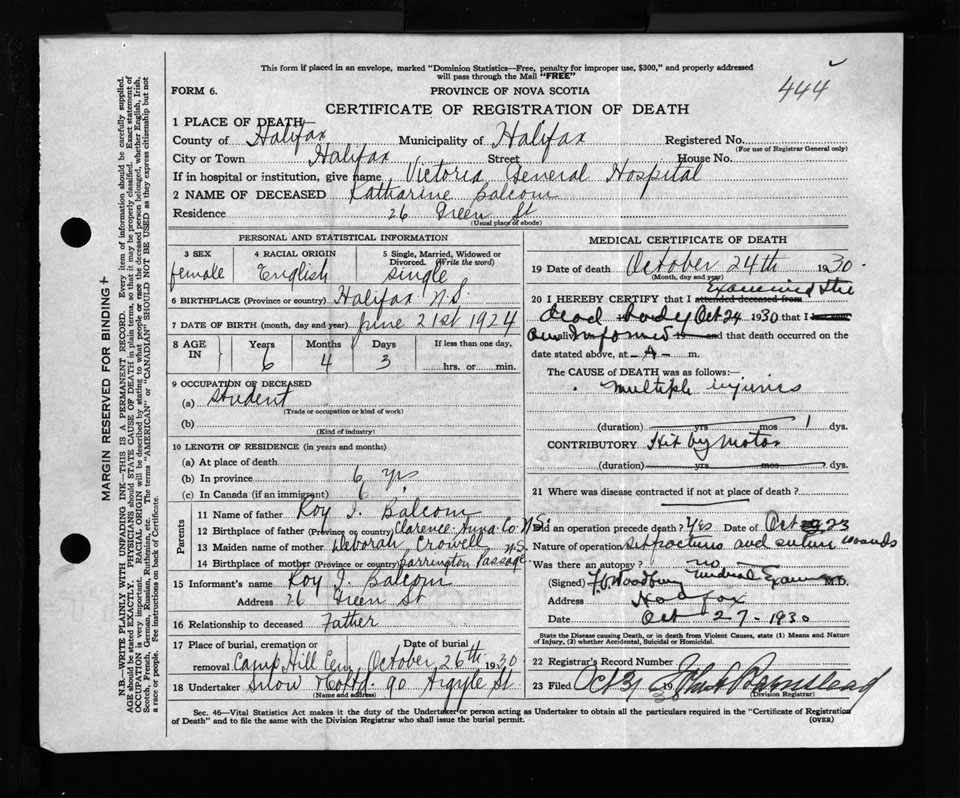 This form if placed in an envelope, marked "Dominion Statistics—Free, penalty for improper use, $300," and properly addressed
will pass through the Mail "FREE"
444
FORM 6.
PROVINCE OF NOVA SCOTIA
CERTIFICATE OF REGISTRATION OF DEATH
1 PLACE OF DEATH
County of Halifax Municipality of Halifax Registered No.
(For use of Registrar General only)
City or Town Halifax Street House No.
If in hospital or institution, give name Victoria General Hospital
2 NAME OF DECEASED Katharine Balcom
Residence 26 Green St
(Usual place of abode)
PERSONAL AND STATISTICAL INFORMATION
3 SEX female
4 RACIAL ORIGIN English
5 Single, Married, Widowed or Divorced. (Write the word) single
6 BIRTHPLACE (Province or country) Halifax N.S.
7 DATE OF BIRTH (month, day and year) June 21st 1924
8 AGE IN Years 6 Months 4 Days 3 If less than one day, hrs. or min.
9 OCCUPATION OF DECEASED
(a) Student
(Trade or occupation or kind of work)
(b)
(Kind of industry)
10 LENGTH OF RESIDENCE (in years and months)
(a) At place of death
(b) In province 6 yrs
(c) In Canada (if an immigrant) 6
Parents
11 Name of father Roy J. Balcom
12 Birthplace of father (Province or country) Clarence Anna. Co. N.S.
13 Maiden name of mother Deborah Crowell
14 Birthplace of mother (Province or country) Barrington Passage N.S.
15 Informant's name Roy J. Balcom
Address 26 Green St
16 Relationship to deceased Father
17 Place of burial, cremation or removal Camp Hill Cem Date of burial October 26th 1930
18 Undertaker Snow & Co Ltd. 90 Argyle St
(Name and address)
MEDICAL CERTIFICATE OF DEATH
19 Date of death October 24th 1930.
(Month, day and year)
20 I HEREBY CERTIFY that I attended deceased from Examined the
dead body Oct 24 1930 that I
am Informed and that death occurred on the
date stated above, at m.
The CAUSE of DEATH was as follows:
multiple injuries
(duration) yrs mos 1 dys.
CONTRIBUTORY Hit by Motor
(duration) yrs mos dys.
21 Where was disease contracted if not at place of death?
Did an operation precede death? Yes Date of Oct 23
Nature of operation and suture wounds
Was there an autopsy? no
(Signed) F.V. Woodbury Medical Examiner M.D.
Address Halifax
Date Oct 27, 1930
State the Disease causing Death, or in death from Violent Causes, state (1) Means and Nature of Injury, (2) whether Accidental, Suicidal or Homicidal.
22 Registrar's Record Number
23 Filed Oct 31 19
(Division Registrar)
Sec. 46—Vital Statistics Act makes it the duty of the Undertaker or person acting as Undertaker to obtain all the particulars required in the "Certificate of Registration
of Death" and to file the same with the Division Registrar who shall issue the burial permit.
(OVER)
MARGIN RESERVED FOR BINDING
N.B.—WRITE PLAINLY WITH UNFADING INK—THIS IS A PERMANENT RECORD. Every item of information should be carefully supplied.
AGE should be stated EXACTLY. PHYSICIANS should STATE CAUSE OF DEATH in plain terms, so that it may be properly classified. Exact statement of
OCCUPATION is very important. RACIAL ORIGIN will be described by stating to what people or race the deceased person belonged, whether English, Irish,
Scotch, French, German, Russian, Ruthenian, etc. The terms "AMERICAN" or "CANADIAN" SHOULD NOT BE USED as they express citizenship but not
a race or people. See instructions on back of Certificate.